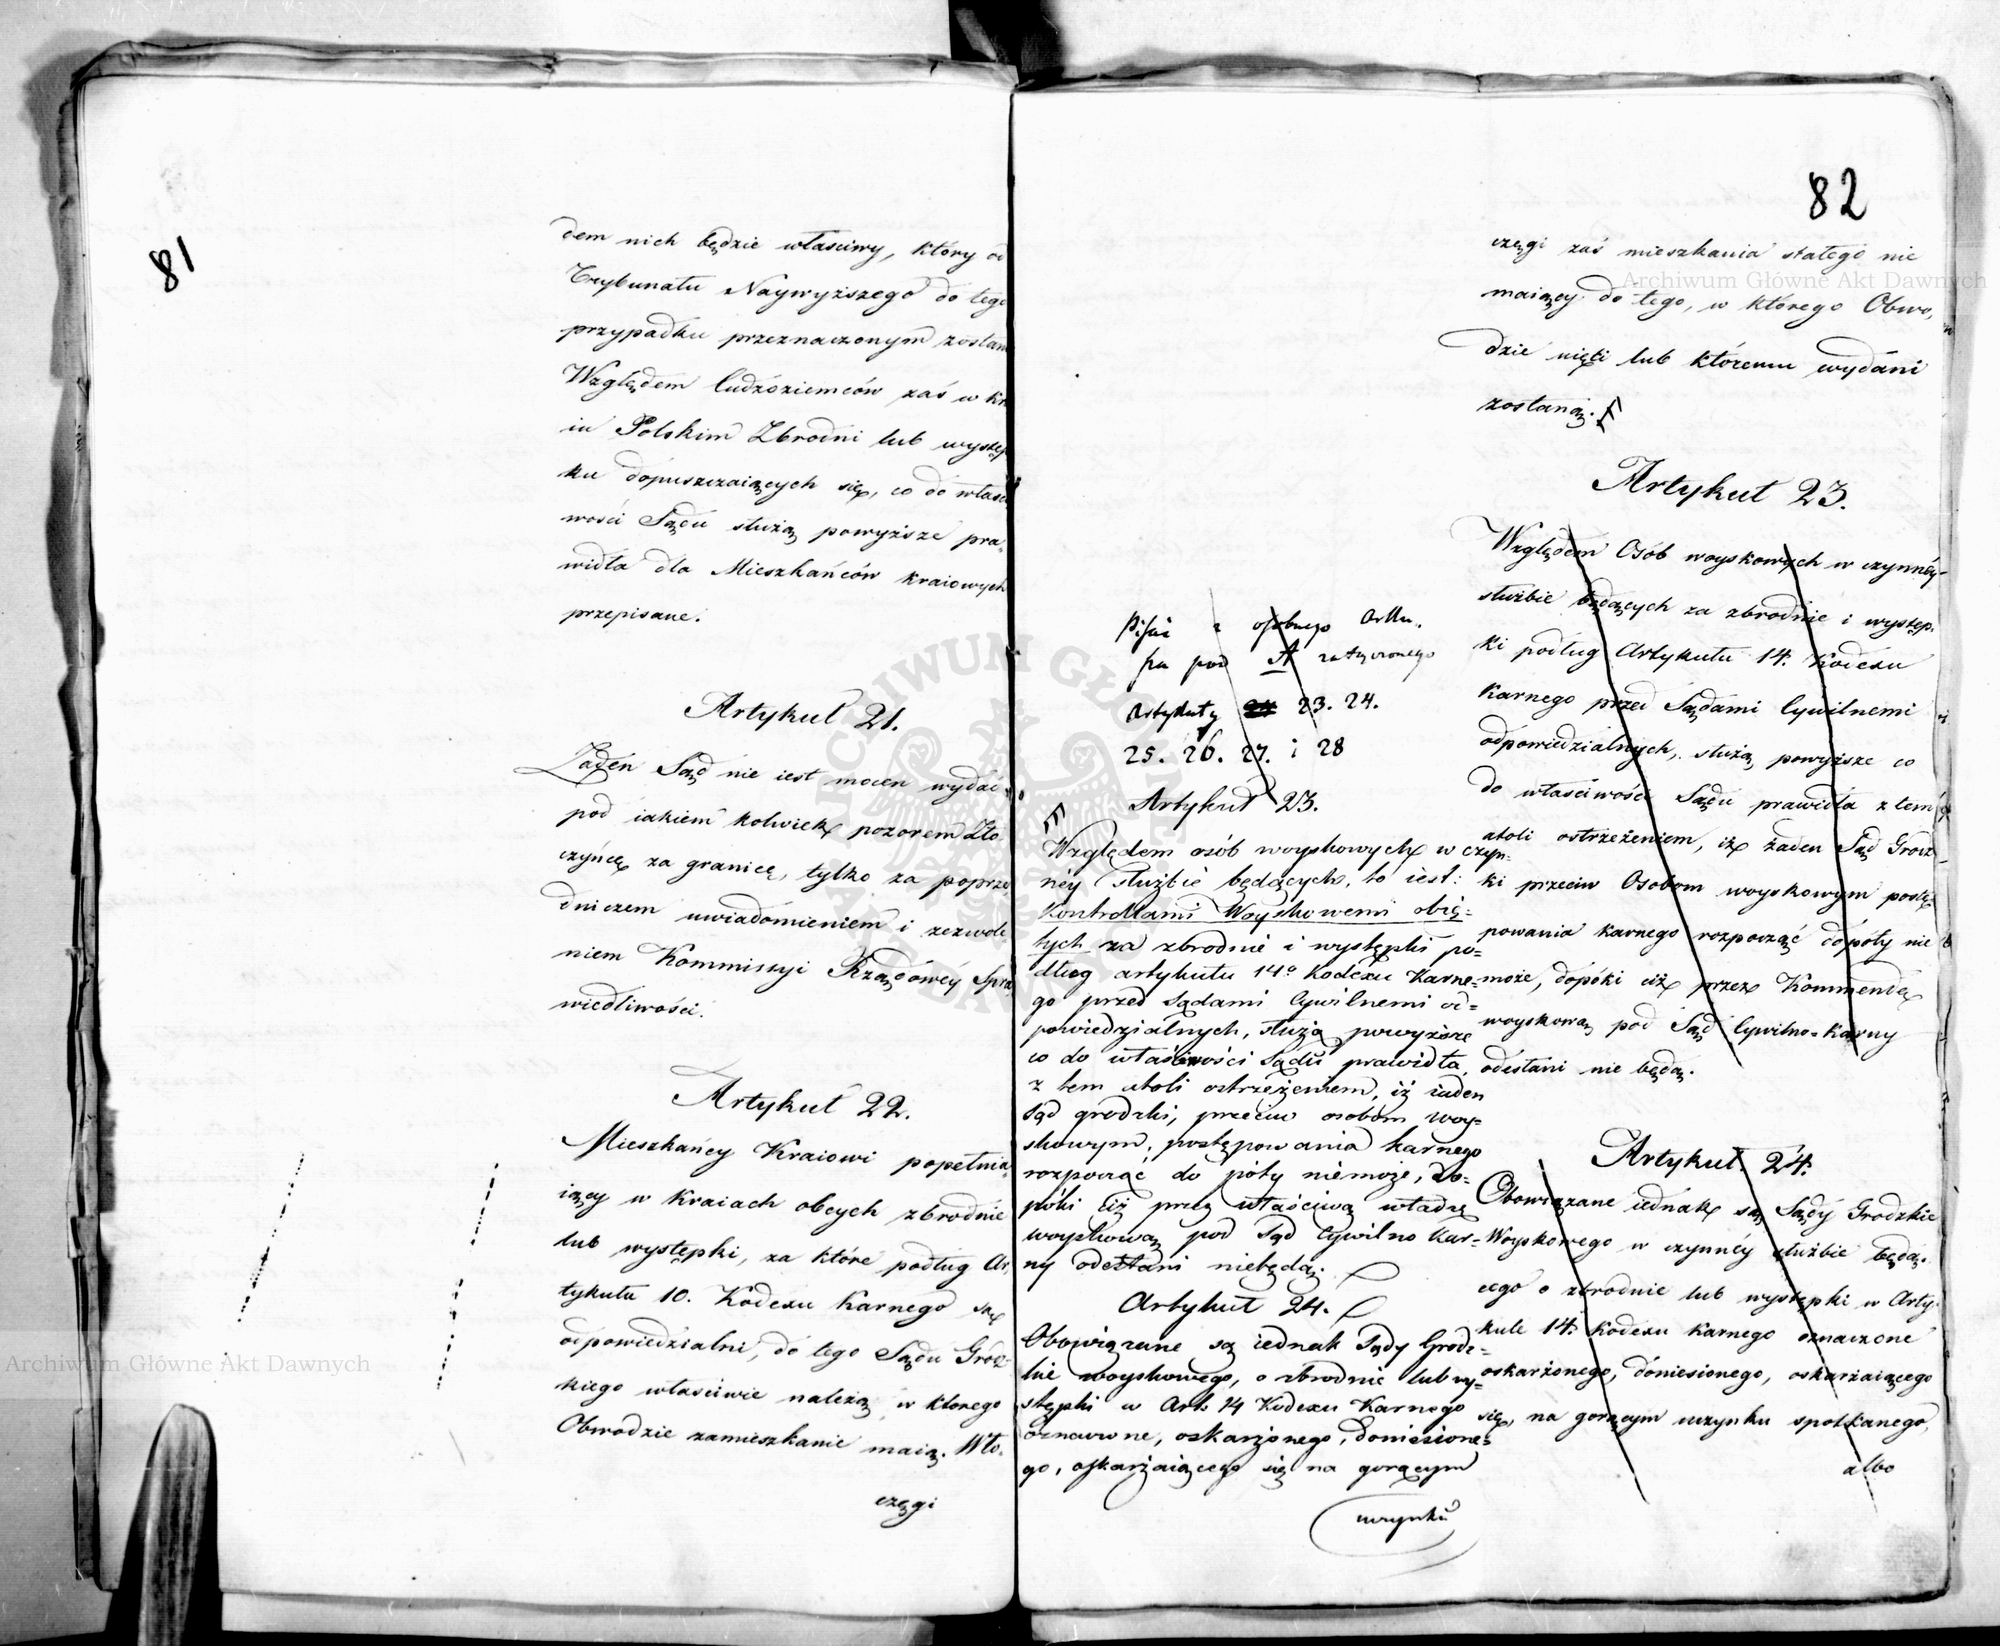 81
dem nich będzie właściwy, który od
Trybunału Naywyższego do tego
przypadku przeznaczonym zostanie
Względem Cudzoziemców zaś w kra
iu Polskim Zbrodni lub występ
ku dopuszczaiących się, co do właści
wości Sądu służą powyższe pra„
widła dla Mieszkańców kraiowych
przepisane.
Artykuł 21.
Żaden Sąd nie iest mocen wydać
pod iakiem kolwiek pozorem Zło„
czyńcę za granicę, tylko za poprze
dniczem uwiadomieniem i zezwole„
niem Kommissyi Rządowéy Spra„
wiedliwości.
Artykuł 22.
Mieszkańcy Kraiowi popełnia
iący w Kraiach obcych zbrodnie
lub występki, za które podług Ar„
tykułu 10. Kodexu Karnego są
odpowiedzialni, do tego Sądu Grodz„
kiego właściwie należą w którego
Obwodzie zamieszkanie maią. Włó„
częgi
82
częgi zaś mieszkania stałego nie
maiący do tego, w którego Obwo„
dzie uięci lub któremu wydani
zostaną. F
Artykuł 23.
Względem Osób woyskowych w czynnéy
służbie będących za zbrodnie i występ„
ki podług Artykułu 14. Kodexu
Karnego przed Sądami Cywilnemi
odpowiedzialnych, służą powyższe co
do właściwości Sądu prawidła z tem
atoli ostrzeżeniem, iż żaden Sąd Grodz
ki przeciw Osobom woyskowym postę„
powania karnego rozpocząć dopóty nie
może, dopóki ciż przez Kommendę
woyskową pod Sąd Cywilno=karny
odesłani nie będą.
Artykuł 24.
Obowiązane iednak są Sądy Grodzkie
Woyskowego w czynnéy służbie będą„
cego o zbrodnie lub występki w Arty„
kule 14. Kodexu Karnego oznaczone
oskarżonego, doniesionego, oskarżaiącego
się, na gorącym uczynku spotkanego,
albo
z osobnego Arku„
sza pod A załączonego
Artykuły 23. 24.
25. 26. 27. i 28
Artykuł 23.
F
Względem osób woyskowych w czyn=
néy służbie będących, to iest:
Kontrollami Woyskowemi obię=
tych za zbrodnie i występki po=
dług artykułu 14º Kodexu Karne=
go przed Sądami Cywilnemi od=
powiedzialnych, służą powyższe
co do właściwości Sądu prawidła,
z tem atoli ostrzeżeniem, iż żaden
Sąd grodzki, przeciw osobom woy=
skowym, postępowania karnego
rozpocząć do póty niemoże, do=
póki Ciż przez właściwą władzę
woyskową pod Sąd Cywilno Kar=
ny odesłani niebędą.
Artykuł 24.
Obowiązane są iednak Sądy Grodz=
kie woyskowego, o zbrodnie lub wy=
stępki w Art. 14 Kodexu Karnego
oznaczone, oskarżonego, doniesione=
go, oskarżaiącego się na gorącym
uczynku
Archiwum Główne Akt Dawnych
Archiwum Główne Akt Dawnych